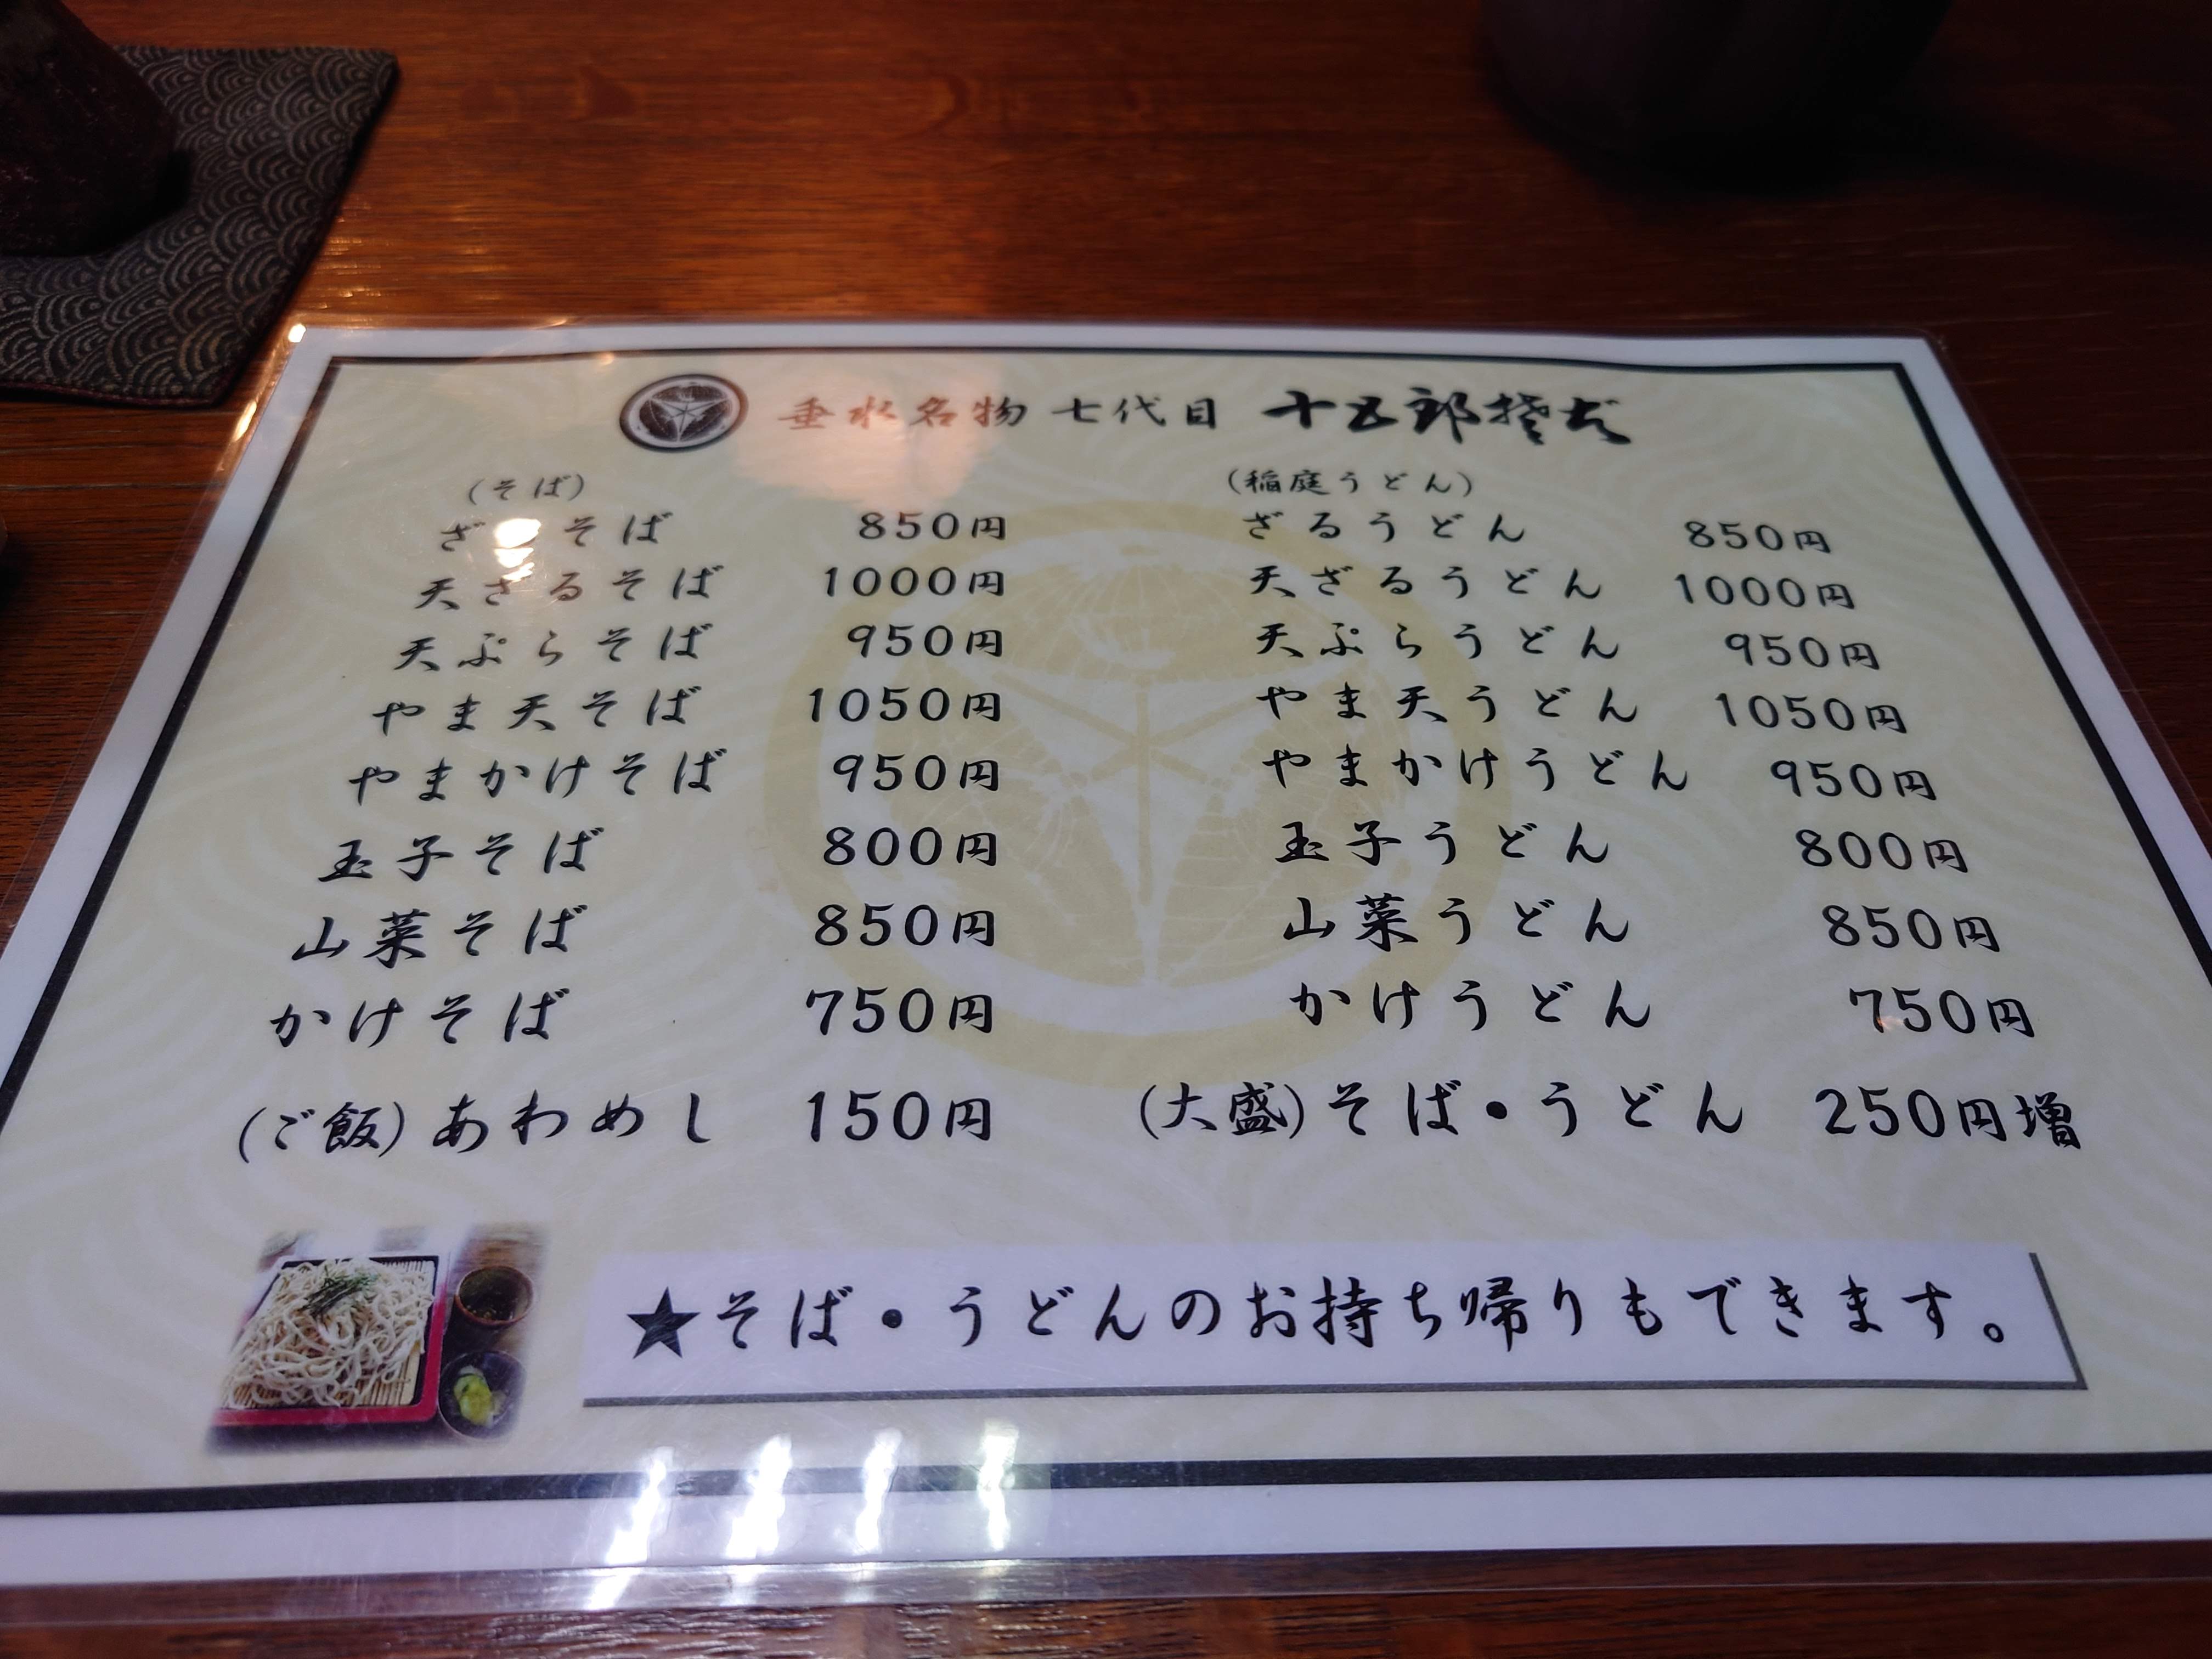 垂水名物 七代目 十五郎そば
(そば)
ざ そば 850円
天ざるそば 1000円
天ぷらそば 950円
やま天そば 1050円
やまかけそば 950円
玉子そば 800円
山菜そば 850円
かけそば 750円
(ご飯)あわめし 150円
(稲庭うどん)
ざるうどん 850円
天ざるうどん 1000円
天ぷらうどん 950円
やま天うどん 1050円
やまかけうどん 950円
玉子うどん 800円
山菜うどん 850円
かけうどん 750円
(大盛)そば・うどん 250円増
★そば・うどんのお持ち帰りもできます。